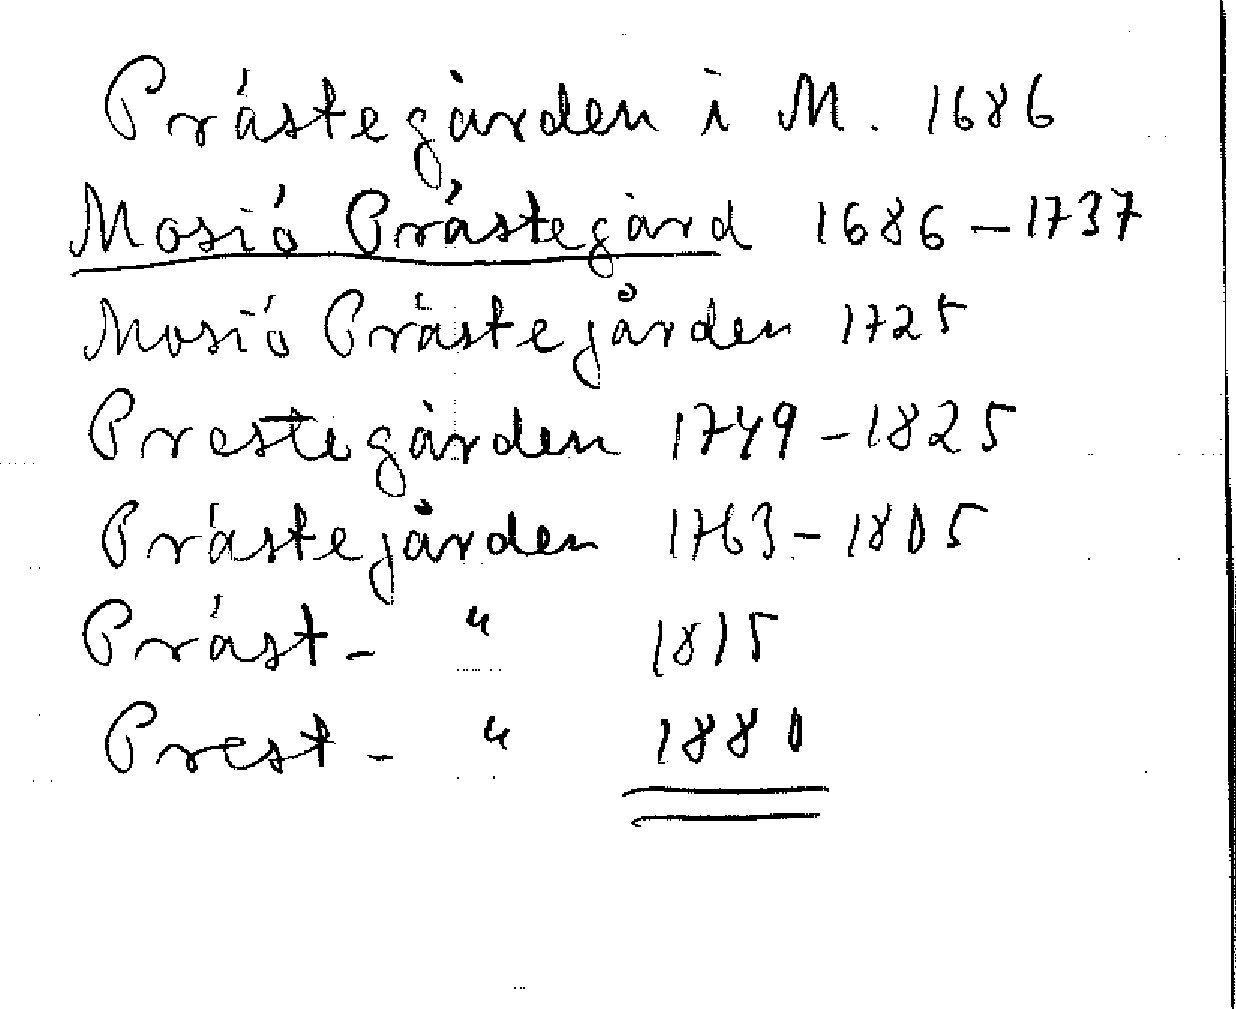 Prästegården i M. 1686
Mosiö Prästegård 1686 – 1737
Mosiö Prästegården 1725
Prestegården 1749 – 1825
Prästegården 1763 – 1805
Präst- " 1815
Prest- " 1880